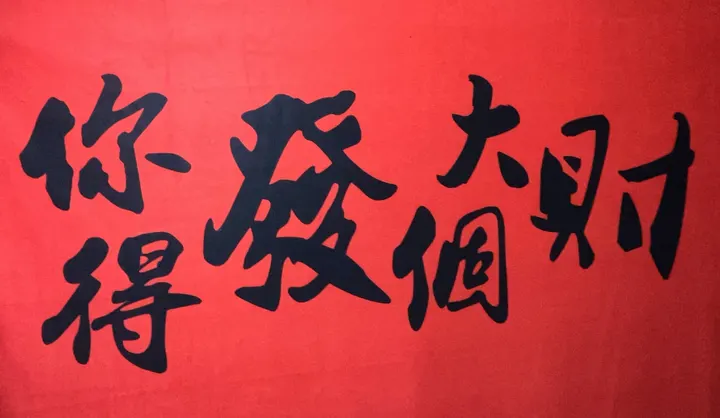 你得發個大財